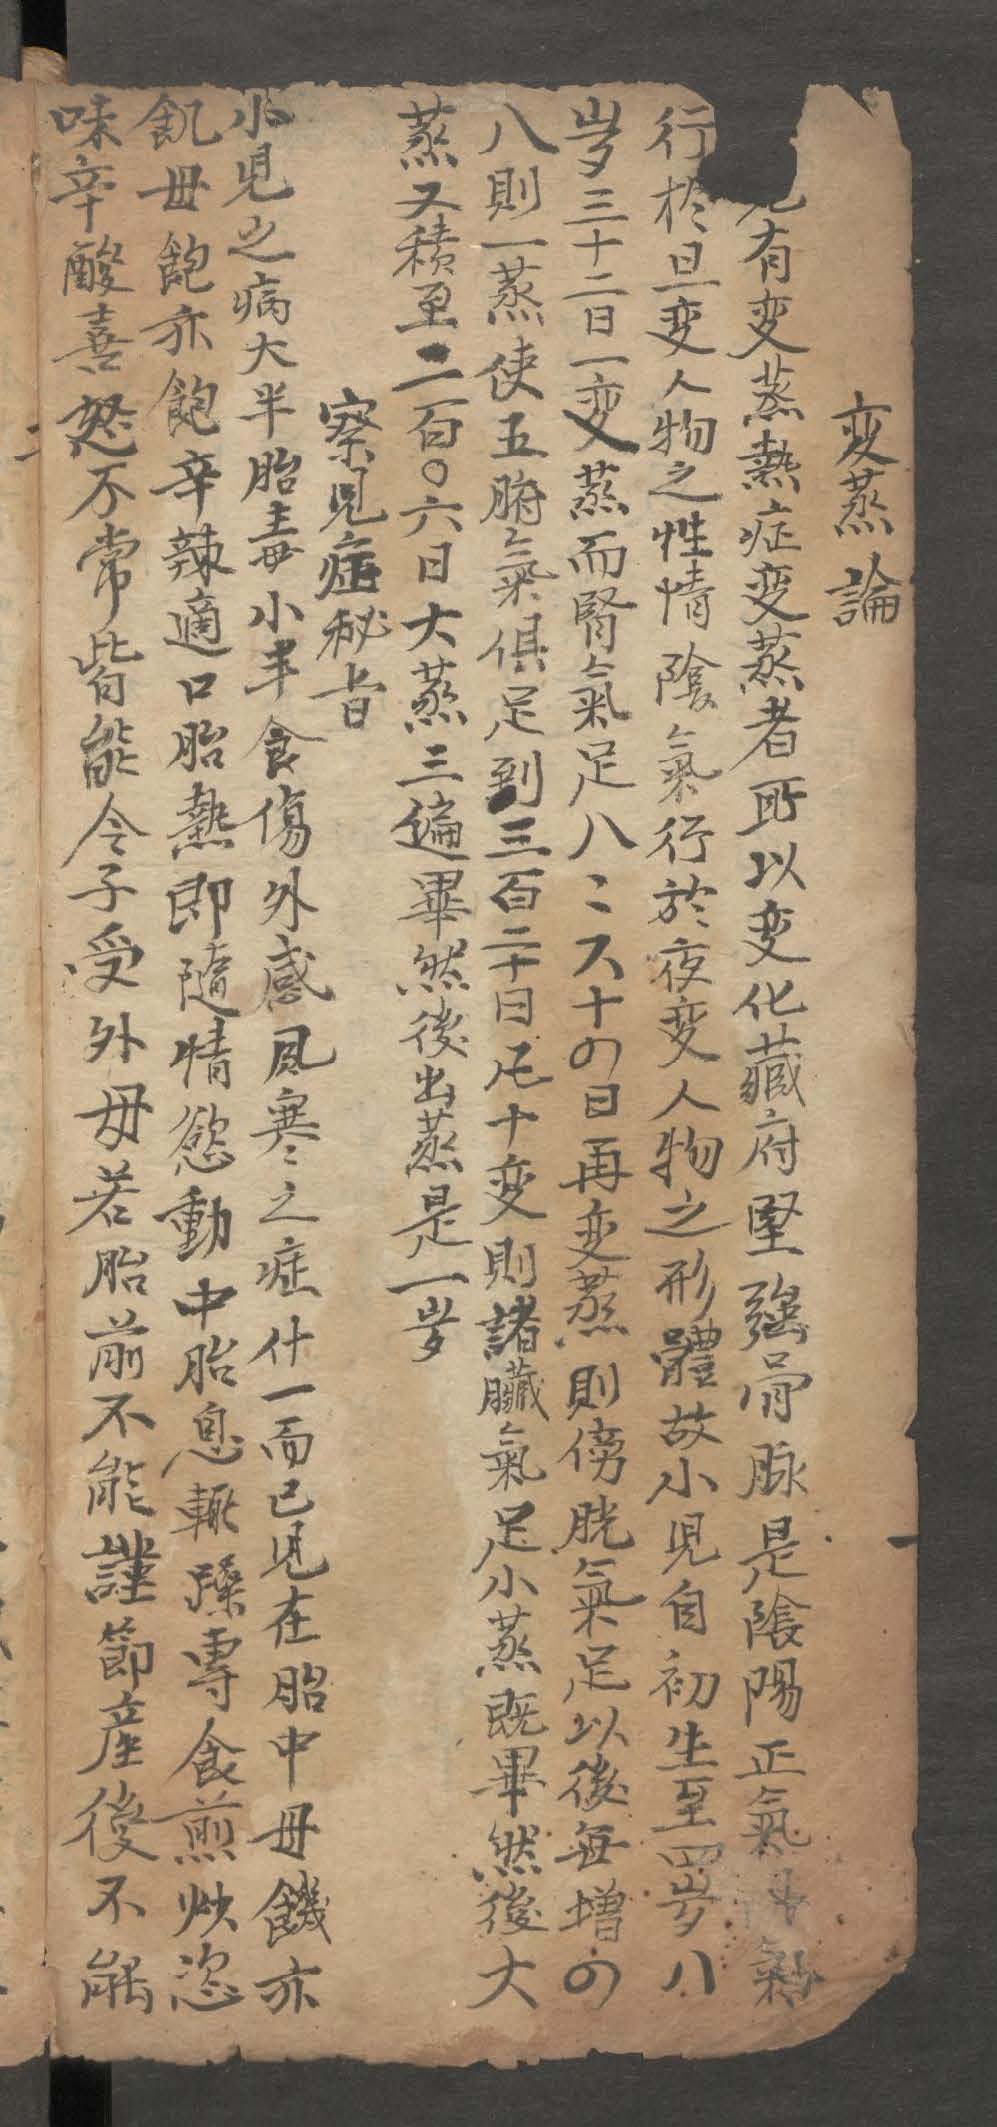 变蒸論
有变蒸熱症变蒸者所以变化藏府堅强骨脉是陰陽正氣氣
行於旦变人物之性情陰氣行於夜变人物之形體故小児自初生至四岁八
岁三十二日一变蒸而腎氣足八〻六十四日再变蒸則傍胱氣足以後每增四
八則一蒸使五腑氣俱足到三百二十日凡十变則諸臟氣足小蒸既畢然後大
蒸又積至二百〇六日大蒸三遍畢然後出蒸是一岁
察児症秘旨
小児之病大半胎毒小半食傷外感風寒之症什一而已児在胎中毋饑亦
飢毋飽亦飽辛辣適口胎熱即隨情慾動中胎息輒躁専食煎炒恣
味辛酸喜怒不常皆能令子受外毋若胎前不能謹節產後不能